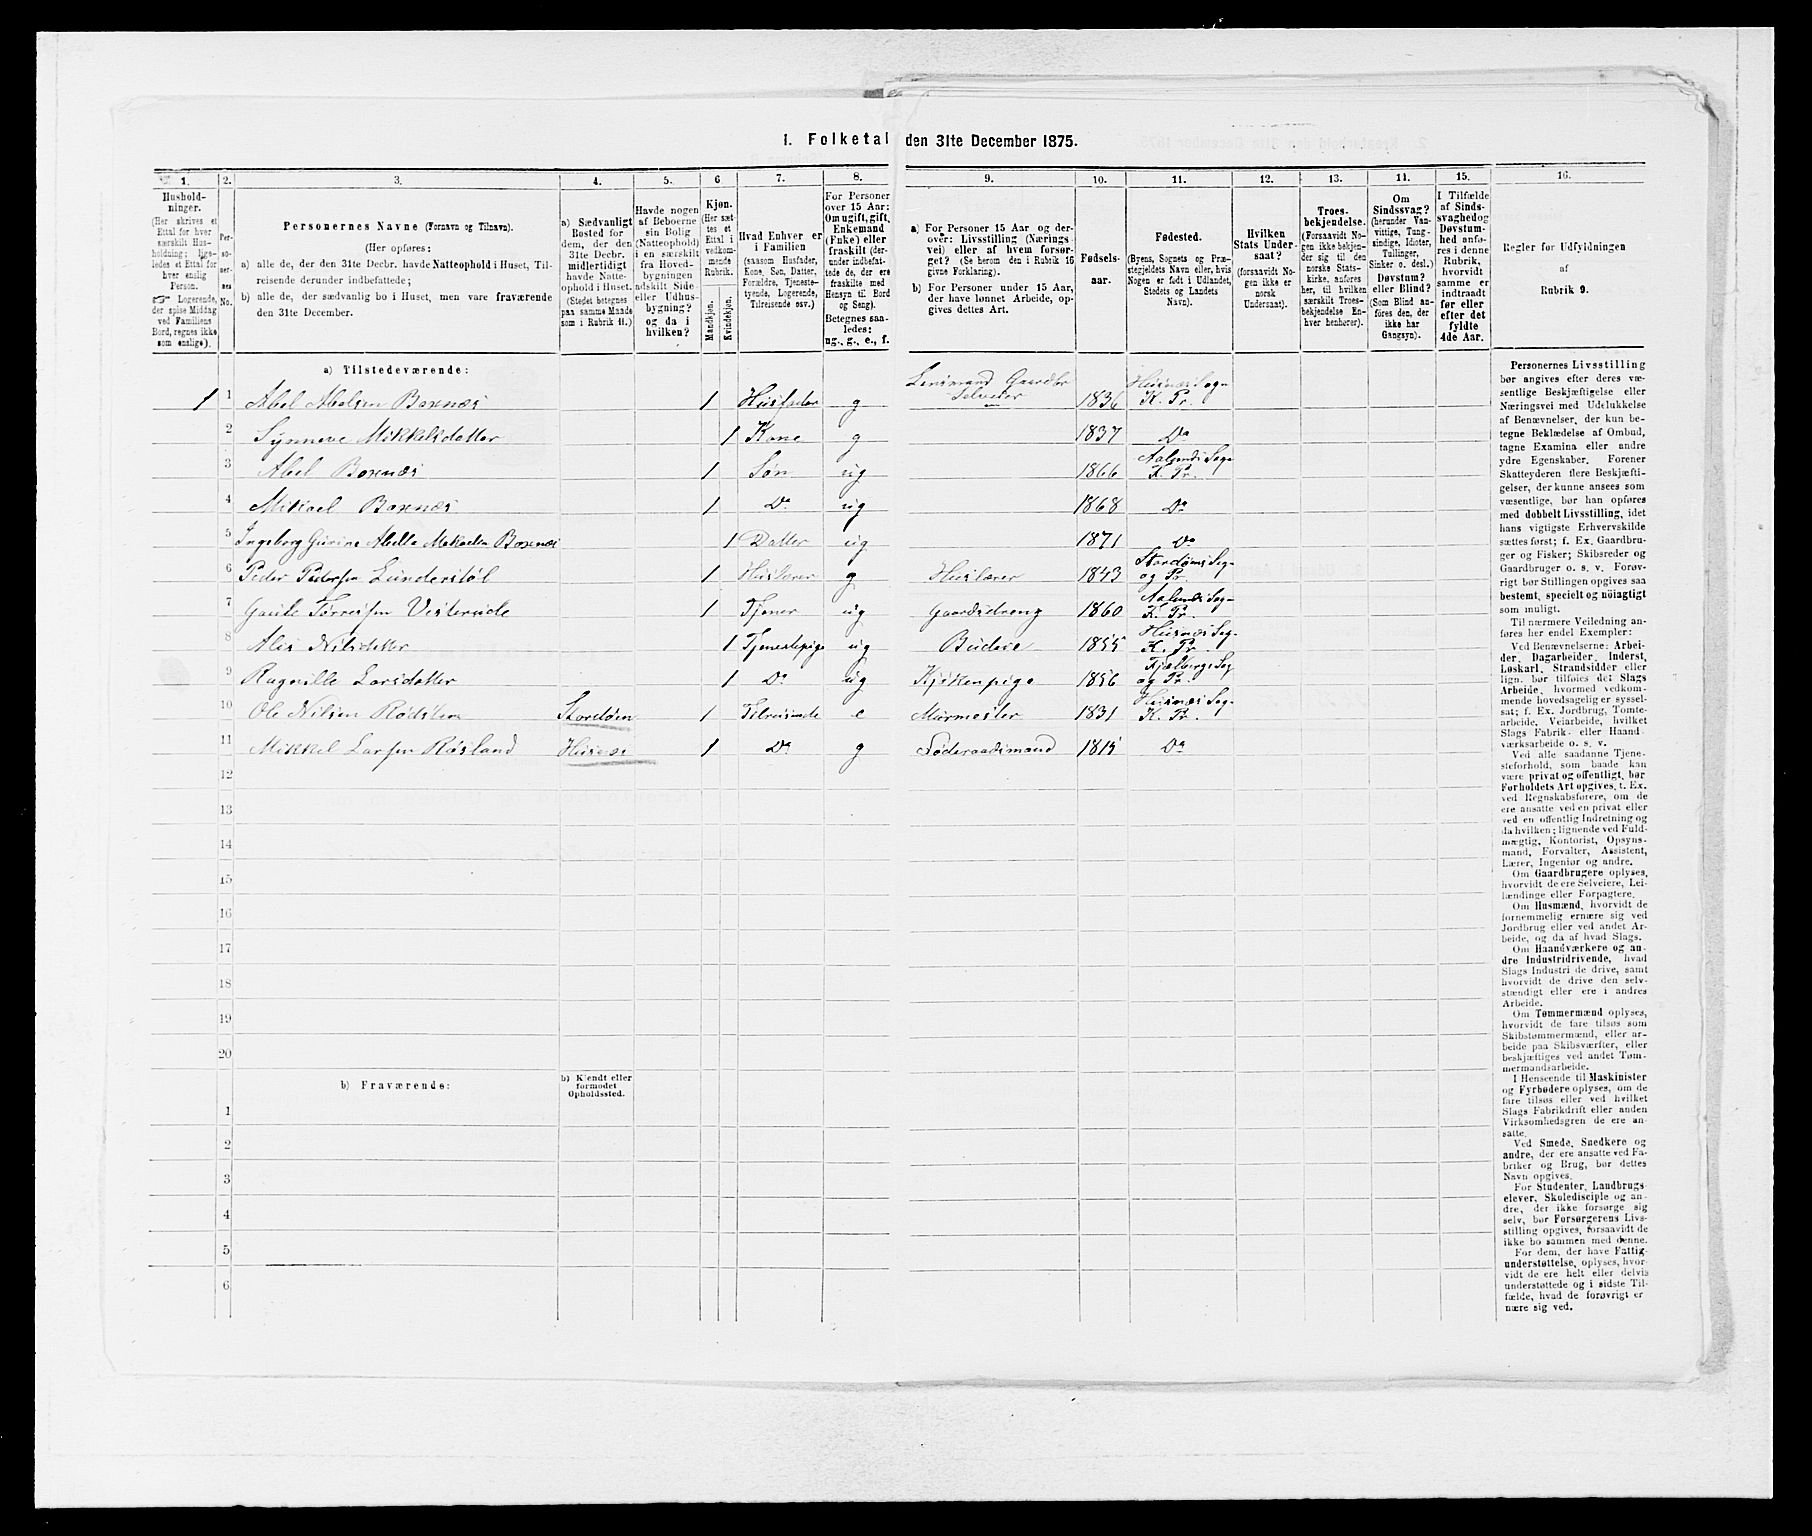 1. Folketal den 31te December 1875.
1. 2. 3. 4. 5. 6 7. 8. 9. 10. 11. 12. 13. 14. 15. 16.
Hushold-
ninger.
(Her skrives et
Ettal for hver
særskilt Hus-
holdning; lige-
ledes et Ettal for
hver enslig
Person.
☞ Logerende,
der spise Middag
ved Familiens
Bord, regnes ikke
som enslige).
Per-
so-
ner-
nes
No.
Personernes Navne (Fornavn og Tilnavn).
(Her opføres:
a) alle de, der den 31te Decbr. havde Natteophold i Huset, Til-
reisende derunder indbefattede;
b) alle de, der sædvanlig bo i Huset, men vare fraværende
den 31te December.
a) Sædvanligt
Bosted for
dem, der den
31te Decbr.
midlertidigt
havde Natte-
ophold i Huset.
(Stedet betegnes
paa samme Maade
som i Rubrik 11.)
Havde nogen
af Beboerne
sin Bolig
(Natteophold)
i en særskilt
fra Hoved-
bygningen
adskilt Side-
eller Udhus-
bygning?
og da i
hvilken?
Kjøn.
(Her sæt-
tes et
Ettal i
vedkom-
mende
Rubrik.
Mandkjøn.
Kvindekjøn.
Hvad Enhver er
i Familien
(saasom Husfader,
Kone, Søn, Datter,
Forældre, Tjeneste-
tyende, Logerende,
Tilreisende osv.)
For Personer
over 15 Aar:
Om ugift, gift,
Enkemand
(Enke) eller
fraskilt (der-
under indbefat-
tede de, der ere
fraskilte med
Hensyn til Bord
og Seng).
Betegnes saa-
ledes:
ug., g., e., f.
a) For Personer 15 Aar og der-
over: Livsstilling (Nærings-
vei) eller af hvem forsør-
get? (Se herom den i Rubrik 16
givne Forklaring).
b) For Personer under 15 Aar,
der have lønnet Arbeide, op-
gives dettes Art.
Fødsels-
aar.
Fødested.
(Byens, Sognets og Præ-
stegjeldets Navn eller, hvis
Nogen er født i Udlandet,
Stedets og Landets
Navn).
Hvilken
Stats Under-
saat?
(forsaavidt No-
gen ikke er
norsk
Undersaat).
Troes-
bekjendelse.
(Forsaavidt No-
gen ikke bekjen-
der sig til den
norske Stats-
kirke, anføres
her, til hvilken
særskilt Troes-
bekjendelse En-
hver henhører).
Om
Sindssvag?
(herunder Van-
vittige, Tung-
sindige, Idioter,
Tullinger,
Sinker o. desl.)
Døvstum?
eller Blind?
(Som Blind an-
føres den, der
ikke har
Gangsyn).
I Tilfælde
af Sinds-
svaghed og
Døvstum-
hed anfø-
res i denne
Rubrik,
hvorvidt
samme er
indtraadt
før eller
efter det
fyldte
4de Aar.
Regler for Udfyldningen
af
Rubrik 9.
a) Tilstedeværende:
1 1 Abel Abelsen Boxnæs 1 Husfader g Lensmand Gaardbr Selveier 1836 Husnæs Sogn K. Pr.
2 Synneve Mikkelsdatter 1 Kone g 1837 Do
3 Abel Boxnæs 1 Søn ug 1866 K. Pr.
4 Mikael Boxnæs 1 Do ug 1868 Do
5 Ingeborg Gurine Abella Mikaela Boxnæs 1 Datter ug 1871 Do
6 Peder Pedersen Lunderstøl 1 Huslærer g Huslærer 1843 og Pr.
7 Gaute Tørresen 1 Tjener ug Gaardsdreng 1860 K. Pr.
8 Alis Nilsdatter 1 Tjenestepige ug Budeie 1855 Husnæs Sog. K. Pr.
9 Ragnille Larsdatter 1 Do ug Kjøkenpige 1856 Fjælbergs Sog og Pr.
10 Ole Nilsen Stordøen 1 Tilreisende e Murmester 1831 Husnæs Sog. K. Pr.
11 Mikkel Larsen Røsland Husnæs 1 Do g Føderaadsmand 1815 Do
12
13
14
15
16
17
18
19
20
b) Fraværende:
b) Kjendt eller
formodet
Opholdssted.
1
2
3
4
5
6
Personernes Livsstilling
bør angives efter deres væ-
sentlige Beskjæftigelse eller
Næringsvei med Udelukkelse
af Benævnelser, der kun be-
tegne Beklædelse af Ombud,
tagne Examina eller andre
ydre Egenskaber. Forener
Skatteyderen flere Beskjæfti-
gelser, der kunne ansees som
væsentlige, bør han opføres
med dobbelt Livsstilling, idet
hans vigtigste Erhvervskilde
sættes først; f. Ex. Gaardbru-
ger og Fisker; Skibsreder og
Gaardbruger o. s. v. Forøv-
rigt bør Stillingen opgives saa
bestemt, specielt og nöiagtigt
som muligt.
Til nærmere Veiledning an-
føres her endel Exempler:
Ved Benævnelserne: Arbei-
der, Dagarbeider, Inderst,
Løskarl, Strandsidder eller
lign. bør tilføies det Slags
Arbeide, hvormed vedkom-
mende hovedsagelig er syssel-
sat; f. Ex. Jordbrug, Tomte-
arbeide, Veiarbeide, hvilket
Slags Fabrik- eller Haand-
værksarbeide o. s. v.
Ved alle saadanne Tjene-
steforhold, som baade kan
være privat og offentligt, bør
Forholdets Art opgives, f. Ex.
ved Regnskabsførere, om de
ere ansatte ved en privat eller
ved en offentlig Indretning og
da hvilken; lignende ved Fuld-
mægtig, Kontorist, Opsyns-
mand, Forvalter, Assistent,
Lærer, Ingeniør og andre.
Om Gaardbrugere oplyses,
hvorvidt de ere Selveiere, Lei-
lændinge eller Forpagtere.
Om Husmænd, hvorvidt de
fornemmelig ernære sig ved
Jordbrug eller ved andet Ar-
beide, og da af hvad Slags.
Om Haandværkere og an-
dre Industridrivende, hvad
Slags Industri de drive, samt
hvorvidt de drive den selv-
stændigt eller ere i andres
Arbeide.
Om Tømmermænd oplyses,
hvorvidt de fare tilsøs som
Skibstømmermænd, eller ar-
beide paa Skibsværfter, eller
beskjæftiges ved andet Tøm-
mermandsarbeide.
I Henseende til Maskinister
og Fyrbødere oplyses, om de
fare tilsøs eller ved hvilket
Slags Fabrikdrift eller anden
Virksomhedsgren de ere an-
satte.
Ved Smede, Snedkere og
andre, der ere ansatte ved Fa-
briker og Brug, bør dettes
Navn opgives.
For Studenter, Landbrugs-
elever, Skoledisciple og an-
dre, der ikke forsørge sig
selv, bør Forsørgerens Livs-
stilling opgives, forsaavidt de
ikke bo sammen med denne.
For dem, der have Fattig-
understøttelse, oplyses, hvor-
vidt de ere helt eller delvis
understøttede og i sidste Til-
fælde, hvad de forøvrigt er-
nære sig ved.